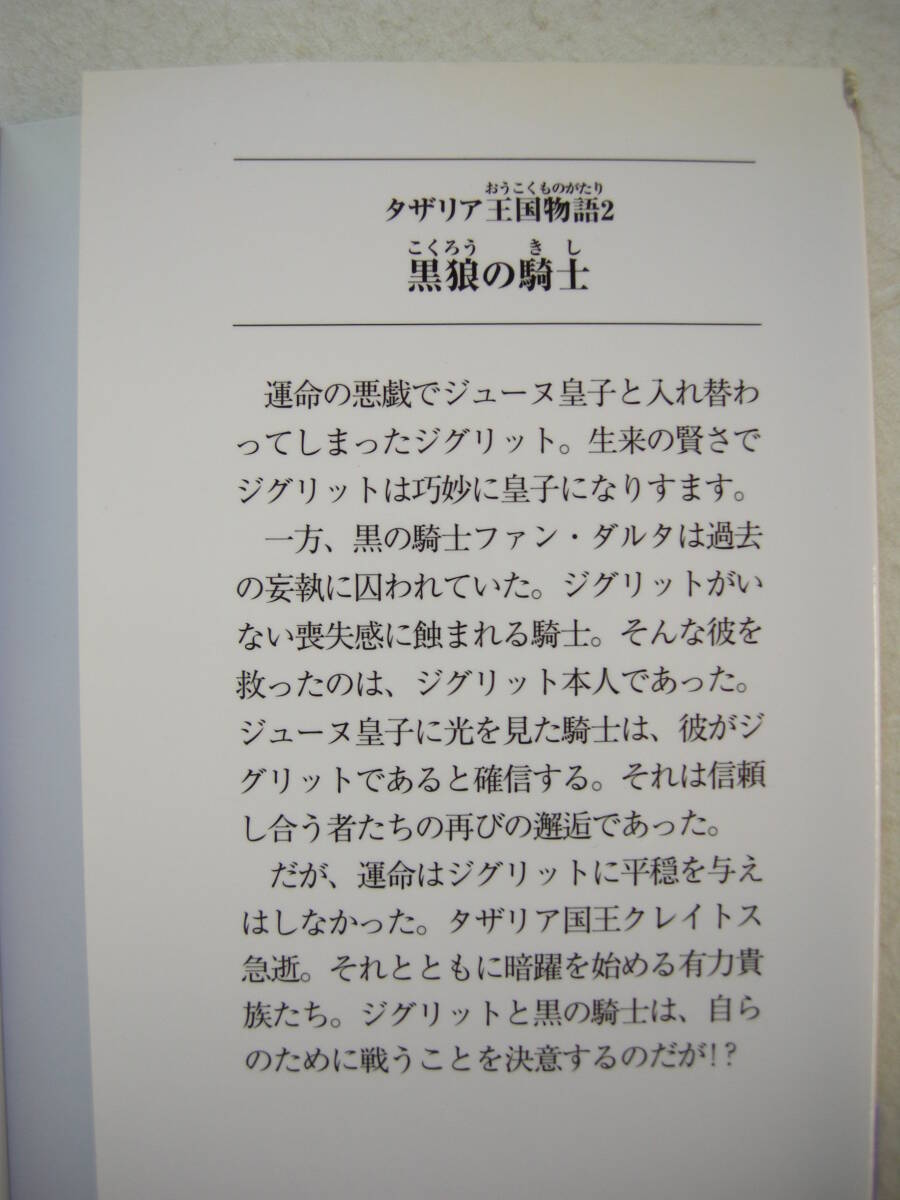 おうこくものがたり
タザリア王国物語2
こくろう きし
黒狼の騎士
運命の悪戯でジューヌ皇子と入れ替わ
ってしまったジグリット。生来の賢さで
ジグリットは巧妙に皇子になりすます。
一方、黒の騎士ファン・ダルタは過去
の妄執に囚われていた。ジグリットがい
ない喪失感に蝕まれる騎士。そんな彼を
救ったのは、ジグリット本人であった。
ジューヌ皇子に光を見た騎士は、彼がジ
グリットであると確信する。それは信頼
し合う者たちの再びの邂逅であった。
だが、運命はジグリットに平穏を与え
はしなかった。タザリア国王クレイトス
急逝。それとともに暗躍を始める有力貴
族たち。ジグリットと黒の騎士は、自ら
のために戦うことを決意するのだが!?